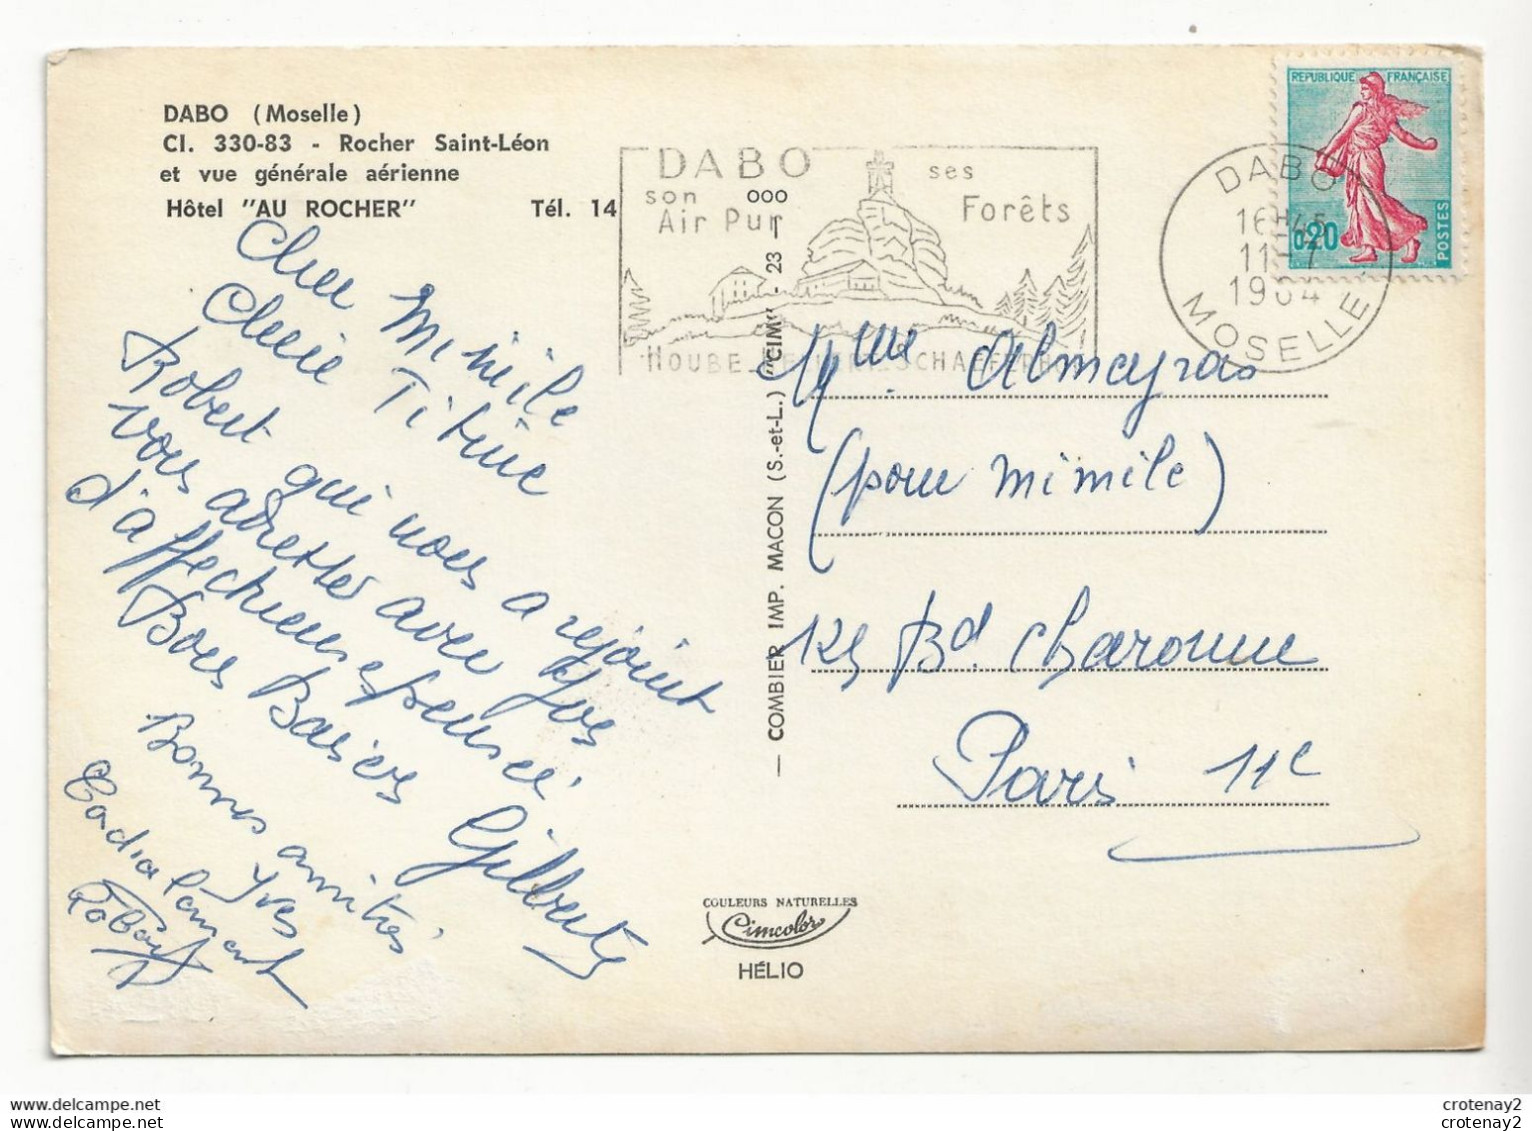 DABO (Moselle)
CI. 330-83 - Rocher Saint-Léon
et vue générale aérienne
Hôtel "AU ROCHER" Tél. 14
Cher Mimile
Chérie Titine
Robert qui nous a rejoint
vous adresse avec Yves
d'affectueuses pensées
Bons Baisers Gilberte
Bonnes amitiés
Yves
Cordialement
Robert
DABO
son ooo ses
Air Pur Forêts
HOUBE SCHAEFERHOF
— COMBIER IMP. MACON (S.-et-L.) "CIM" - 23 -
REPUBLIQUE FRANÇAISE
0,20
POSTES
DABO
16H45
11-7
1964
MOSELLE
Mme Almayrac
(pour mimile)
Bd. Charonne
Paris 11e
COULEURS NATURELLES
Cimcolor
HÉLIO
delcampe.net
delcampe.net
crotenay2
crotenay2